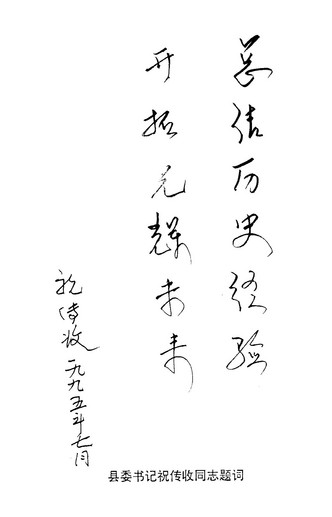 总结历史经验
开拓光辉未来
祝传收
一九九五年七月
县委书记祝传收同志题词